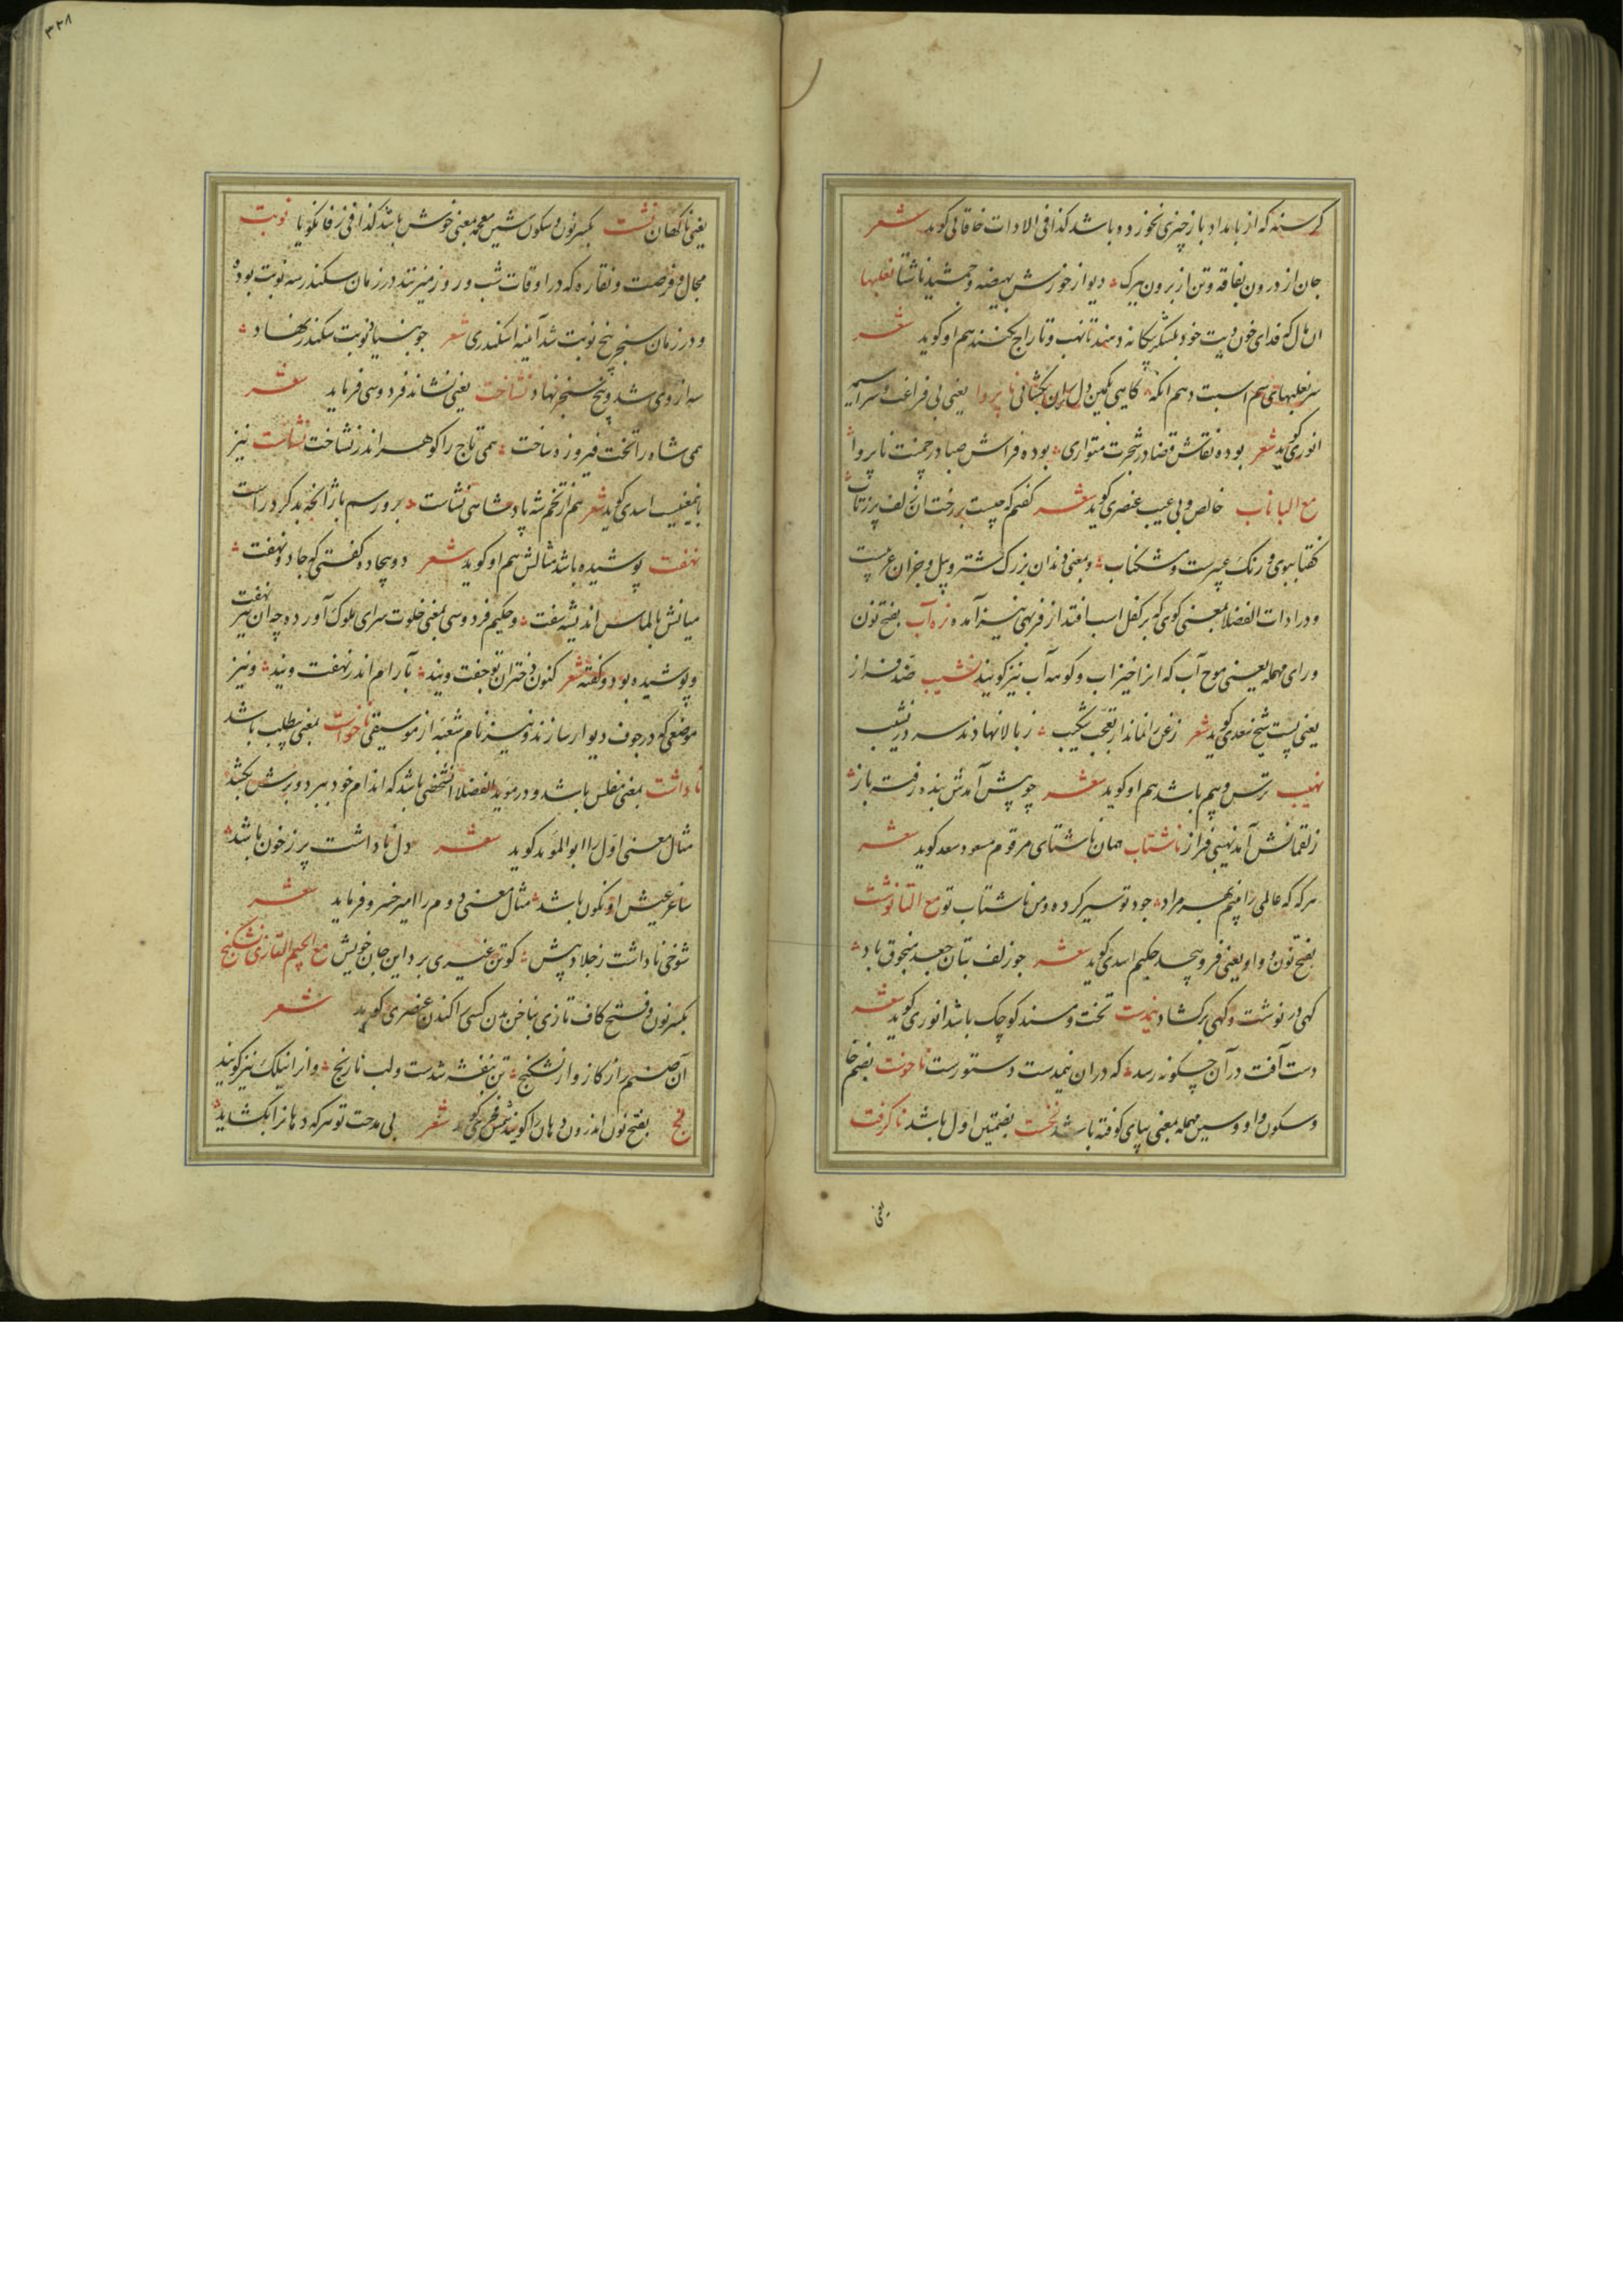 گرسنه که از بامداد باز چیزی نخورده باشد کذا فی الادات خاقانی گوید شعر
جان از درون بفاقه و تن از برون ببرک دیو از خورش بهیضه و جمشید ناشتا نعلبها
آن مال که فدای خون و بیت خود بلشکر بیکانه دهند تا نهب و تاراج نکنند هم او گوید شعر
سر نعلبهای سم اسبت دهم انکه ناپروا یعنی بی فراغت و سراسیمه
انوری گوید شعر بوده نقاش قضا در شجرت متواری بوده فراش صبا در چمنت ناپروا
مع البا ناب خالص و بی عیب عنصری گوید شعر گفتم که چیست بر رخت آن زلف پرزتاب
گفتا ببوی و رنک عبیرست و مشکناب و بمعنی دندان بزرک شتر و پیل و جز ان عربیست
و در ادات الفضلا بمعنی کوی که بر کفل اسب افتد از فربهی نیز آمده نره آب بفتح نون
و رای مهمله یعنی موج آب که انرا خیزاب و کوهه آب نیز کویند نشیب ضد فراز
یعنی پست شیخ سعدی گوید شعر زغن را نماند از تعجب شکیب ز بالا نهادند سر در نشیب
نهیب ترس و بیم باشد هم او گوید شعر چو پیش آمدش بنده رفته باز
ز لقمانش آمد نهیبی فراز ناشتاب همان ناشتای مرقوم مسعود سعد گوید شعر
هر که که عالمی را بینم بهر مراد جود تو سیر کرده و من ناشتاب تو مع التا نوشت
بفتح نون و واو یعنی فرو پیچد حکیم اسدی گوید شعر چو زلف بتان جعد منجوق باد
کهی در نوشت و کهی بر کشاد نیمدست تخت و مسند کوچک باشد انوری گوید شعر
دست آفت در آن چکونه رسد که در ان نیمدست دستورست ناخوست بضم خا
و سکون واو و سین مهمله بمعنی بپای کوفته باشد نخست بضمتین اول باشد ناکرفت
یعنی
۳۲۸
یعنی ناکهان نشت بکسر نون و سکون شین معجمه بمعنی خوش باشد کذا فی زفانکویا نوبت
مجال و فرصت و نقاره که در اوقات شب و روز میزنند در زمان سکندر سه نوبت بود
و در زمان سنجر پنج نوبت شد آئینه اسکندری شعر جو بنیاد نوبت سکندر نهاد
سه از وی شد و پنج سنجر نهاد نشاخت یعنی نشاند فردوسی فرماید شعر
همی شاه را تخت فیروزه ساخت همی تاج را گوهر اندر نشاخت نشاست نیز
بامعنیست اسدی گوید شعر هم از تخم شه پادشاهی نشاست برو رسم باژ انچه بد کرد راست
نهفت پوشیده باشد مثالش هم او گوید شعر دو بیجاده گفتی که جادو نهفت
میانش بالماس اندیشه سفت و حکیم فردوسی بمعنی خلوت سرای ملوک آورده چه ان نیز نهفت
و پوشیده بود و گفته شعر کنون دختران تو جفت ویند بآرام اندر نهفت ویند و نیز
موضعی که در جوف دیوار سازند و نیز نام شعبه از موسیقی ناخواست بمعنی بیطلب باشد
ناداشت بمعنی مفلس باشد و در موید الفضلا شخصی باشد که اندام خود ببرد و برش بکشد
مثال معنی اول را ابوالموید گوید شعر دل ناداشت پر ز خون باشد
ساغر عیش او نکون باشد مثال معنی دوم را امیر خسرو فرماید شعر
شوخی ناداشت ز جلاد بیش کو تن غیری برد این جان خویش مع الجیم التازی نشکنج
بکسر نون و فتح کاف تازی بناخن بدن کسی را کندن عنصری گوید شعر
آن صنم را ز کاز و از نشکنج تن بنفشه شدست و لب نارنج و از انیلک نیز کویند
نج بفتح نون اندرون دهان را کویند شمس فخری کوید شعر بی مدحت تو هر که دهانرا بکشاید